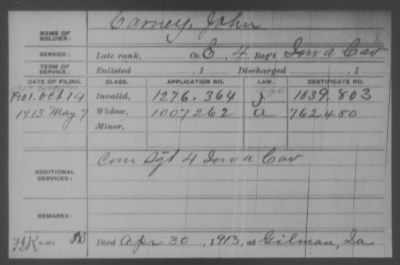 Carney, John
NAME OF SOLDIER:
SERVICE: Late rank, Co E, 4 Reg't Iowa Cav
TERM OF SERVICE: Enlisted , 1 Discharged , 1
DATE OF FILING. CLASS. APPLICATION NO. LAW. CERTIFICATE NO.
1901 Oct 14 Invalid, 1276.364 1039.803
1913 May 7 Widow, 1007262 a 762480
Minor,
ADDITIONAL SERVICES: Com Sgt 4 Iowa Cav
REMARKS:
Died Apr 30, 1913, at Gilman, Ia